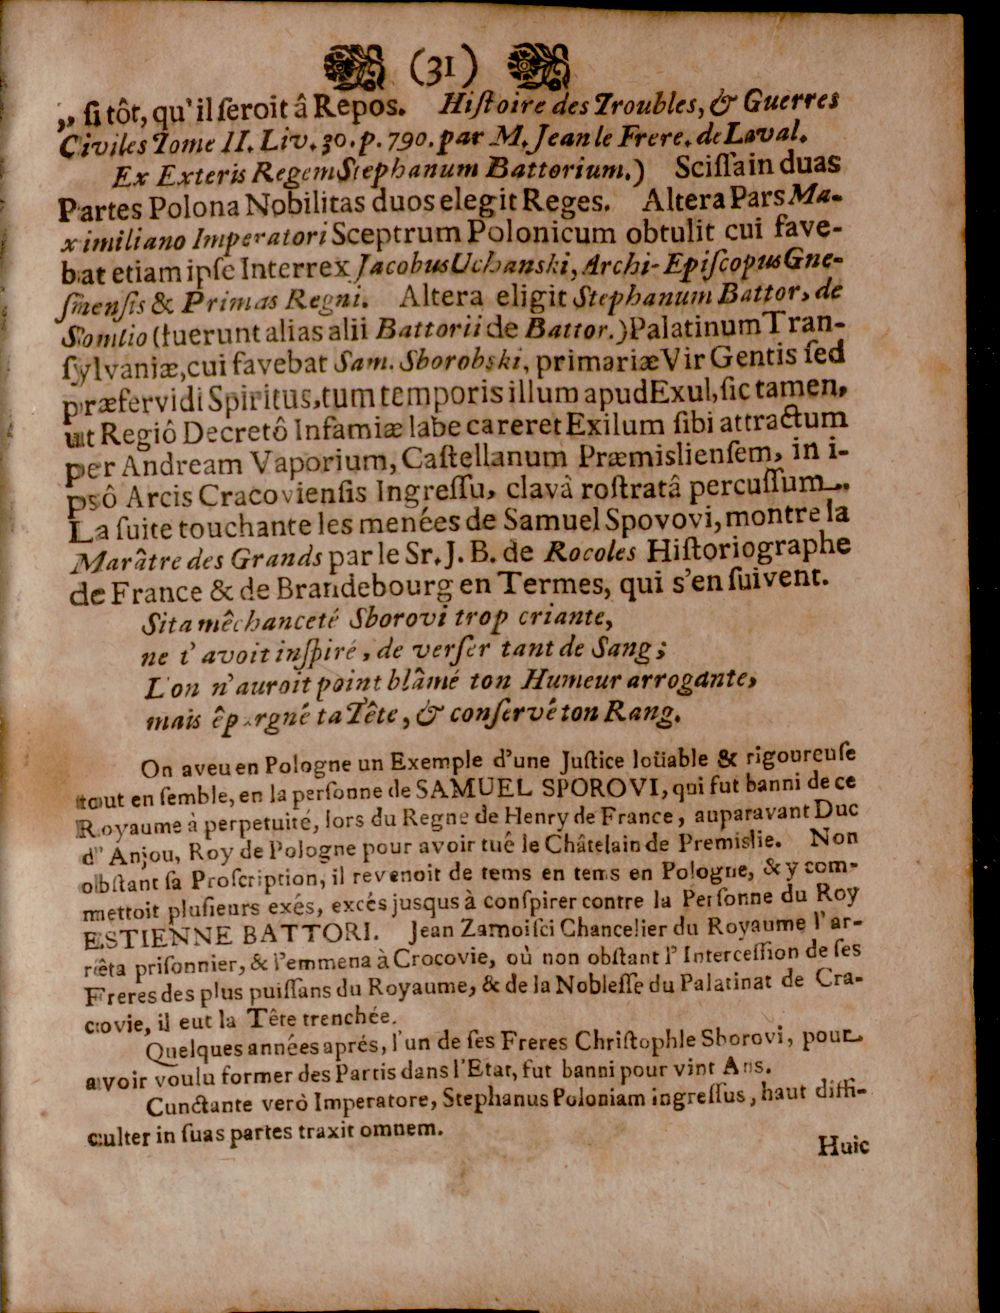 (31)
„ ſi tôt, qu'il ſeroit â Repos. Hiſtoire des Troubles, & Guerres
Civiles Tome II. Liv. 30. p. 790. par M. Jean le Frere. de Laval.
Ex Exteris Regem Stephanum Battorium.) Sciſſa in duas
Partes Polona Nobilitas duos elegit Reges. Altera Pars Ma-
ximiliano Imperatori Sceptrum Polonicum obtulit cui fave-
bat etiam ipſe Interrex Jacobus Uchanski, Archi-Epiſcopus Gne-
ſnenſis & Primas Regni. Altera eligit Stephanum Battor, de
Somlio (fuerunt alias alii Battorii de Battor.) Palatinum Tran-
ſylvaniæ, cui favebat Sam. Sborobski, primariæ Vir Gentis ſed
præfervidi Spiritus, tum temporis illum apud Exul, ſic tamen,
ut Regiô Decretô Infamiæ labe careret Exilum ſibi attractum
per Andream Vaporium, Caſtellanum Præmislienſem, in i-
psô Arcis Cracovienſis Ingreſſu, clavà roſtratâ percuſſum.
La ſuite touchante les menées de Samuel Spovovi, montre la
Marâtre des Grands par le Sr. J. B. de Rocoles Hiſtoriographe
de France & de Brandebourg en Termes, qui s'en ſuivent.
Si ta mêchanceté Sborovi trop criante,
ne t' avoit inſpiré, de verſer tant de Sang;
L'on n'auroit point blâmé ton Humeur arrogante,
mais êpargné ta Tête, & conſervê ton Rang.
On a veu en Pologne un Exemple d'une Juſtice loüable & rigoureuſe
tout en ſemble, en la perſonne de SAMUEL SPOROVI, qui fut banni de ce
Royaume à perpetuité, lors du Regne de Henry de France, auparavant Duc
d' Anjou, Roy de Pologne pour avoir tué le Châtelain de Premislie. Non
obſtant ſa Proſcription, il revenoit de tems en tems en Pologne, & y com-
mettoit pluſieurs exés, excés jusqus à conſpirer contre la Perſonne du Roy
ESTIENNE BATTORI. Jean Zamoiſci Chancelier du Royaume l' ar-
rêta priſonnier, & l'emmena à Crocovie, où non obſtant l' Interceſſion de ſes
Freres des plus puiſſans du Royaume, & de la Nobleſſe du Palatinat de Cra-
covie, il eut la Tête trenchée.
Quelques années aprés, l'un de ſes Freres Chriſtophle Sborovi, pour
avoir voulu former des Partis dans l'Etat, fut banni pour vint Ans.
Cunctante verò Imperatore, Stephanus Poloniam ingreſſus, haut diffi-
culter in ſuas partes traxit omnem.
Huic